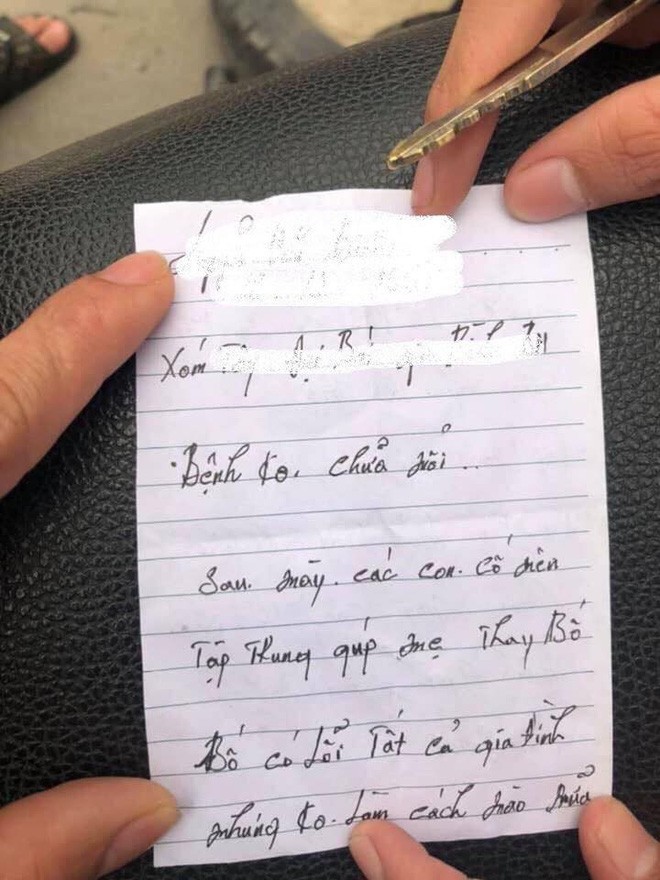 Xóm
Bệnh ko. chữa nổi..
Sau. này. các con. cố nên
Tập Trung giúp mẹ Thay Bố
Bố có Lỗi Tất cả gia đình
nhưng ko. Làm cách nào nữa